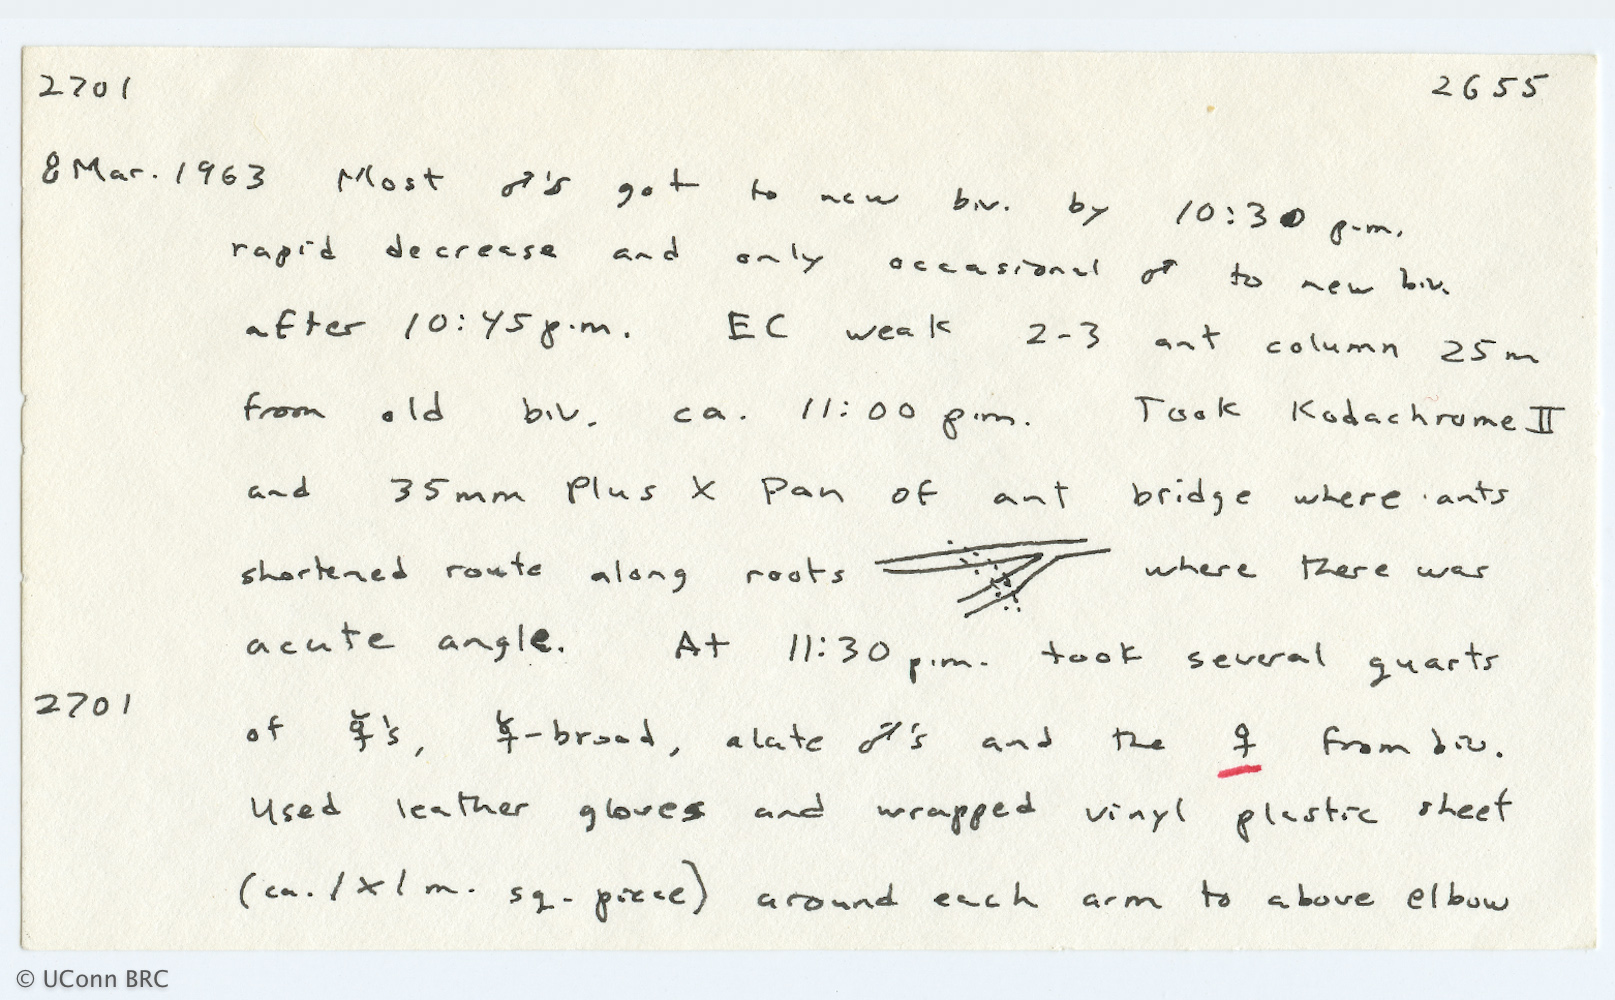 2701 2655
8 Mar. 1963 Most ♂'s got to new biv. by 10:30 p.m.
rapid decrease and only occasional ♂ to new biv.
after 10:45 p.m. EC weak 2-3 ant column 25m
from old biv. ca. 11:00 p.m. Took Kodachrome II
and 35mm Plus X Pan of ant bridge where ants
shortened route along roots where there was
acute angle. At 11:30 p.m. took several quarts
2701
of ☿'s, ☿-brood, alate ♂'s and the ♀ from biv.
Used leather gloves and wrapped vinyl plastic sheet
(ca. 1 x 1 m. sq. piece) around each arm to above elbow
© UConn BRC